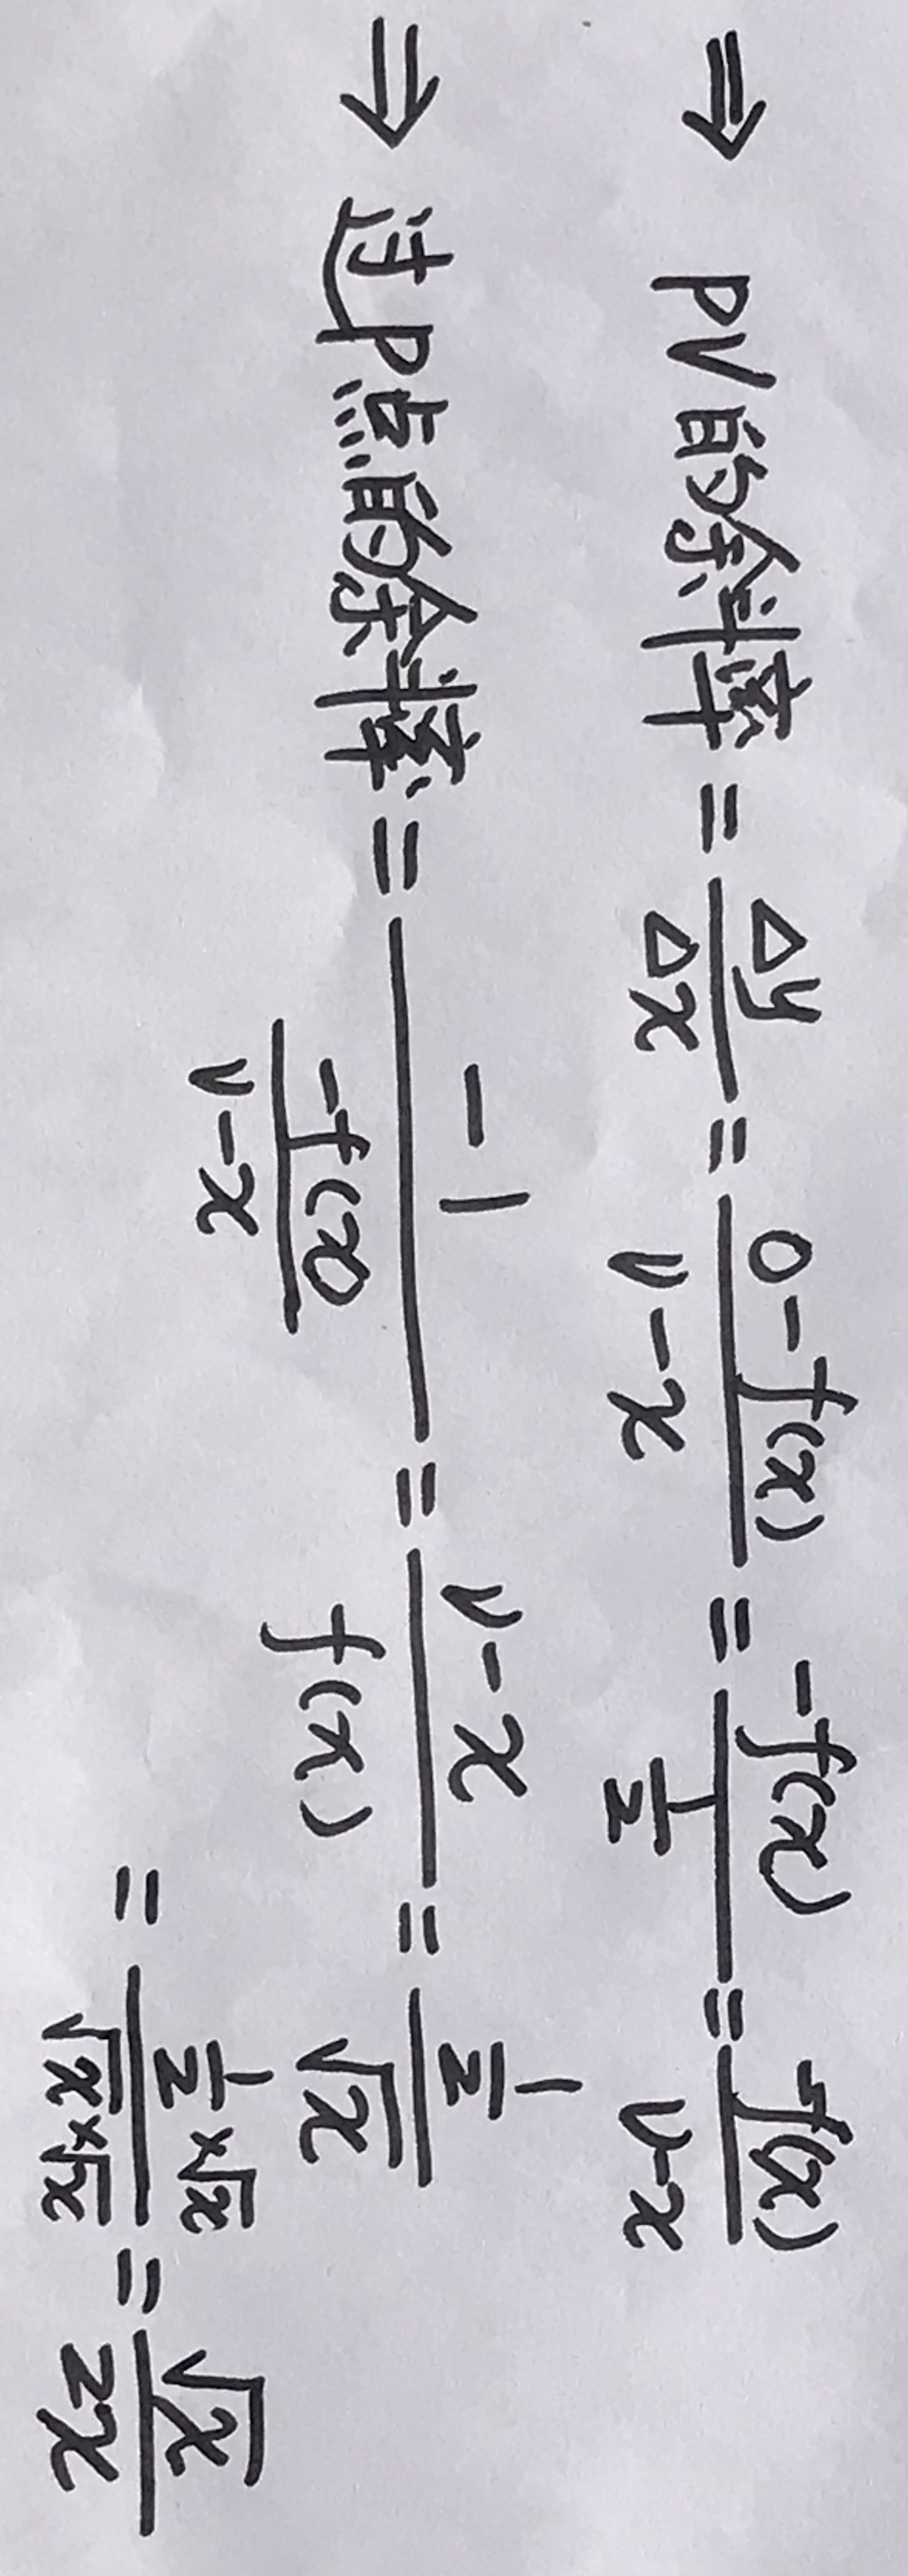 ⇒ PV的斜率 = Δy/Δx = (0-f(x))/(v-x) = -f(x)/(1/2) = -f(x)/(v-x)
⇒ 过P点的斜率 = -1/(-f(x)/(v-x)) = (v-x)/f(x) = (1/2)/√x
= (1/2 × √x)/(√x × √x) = √x/2x